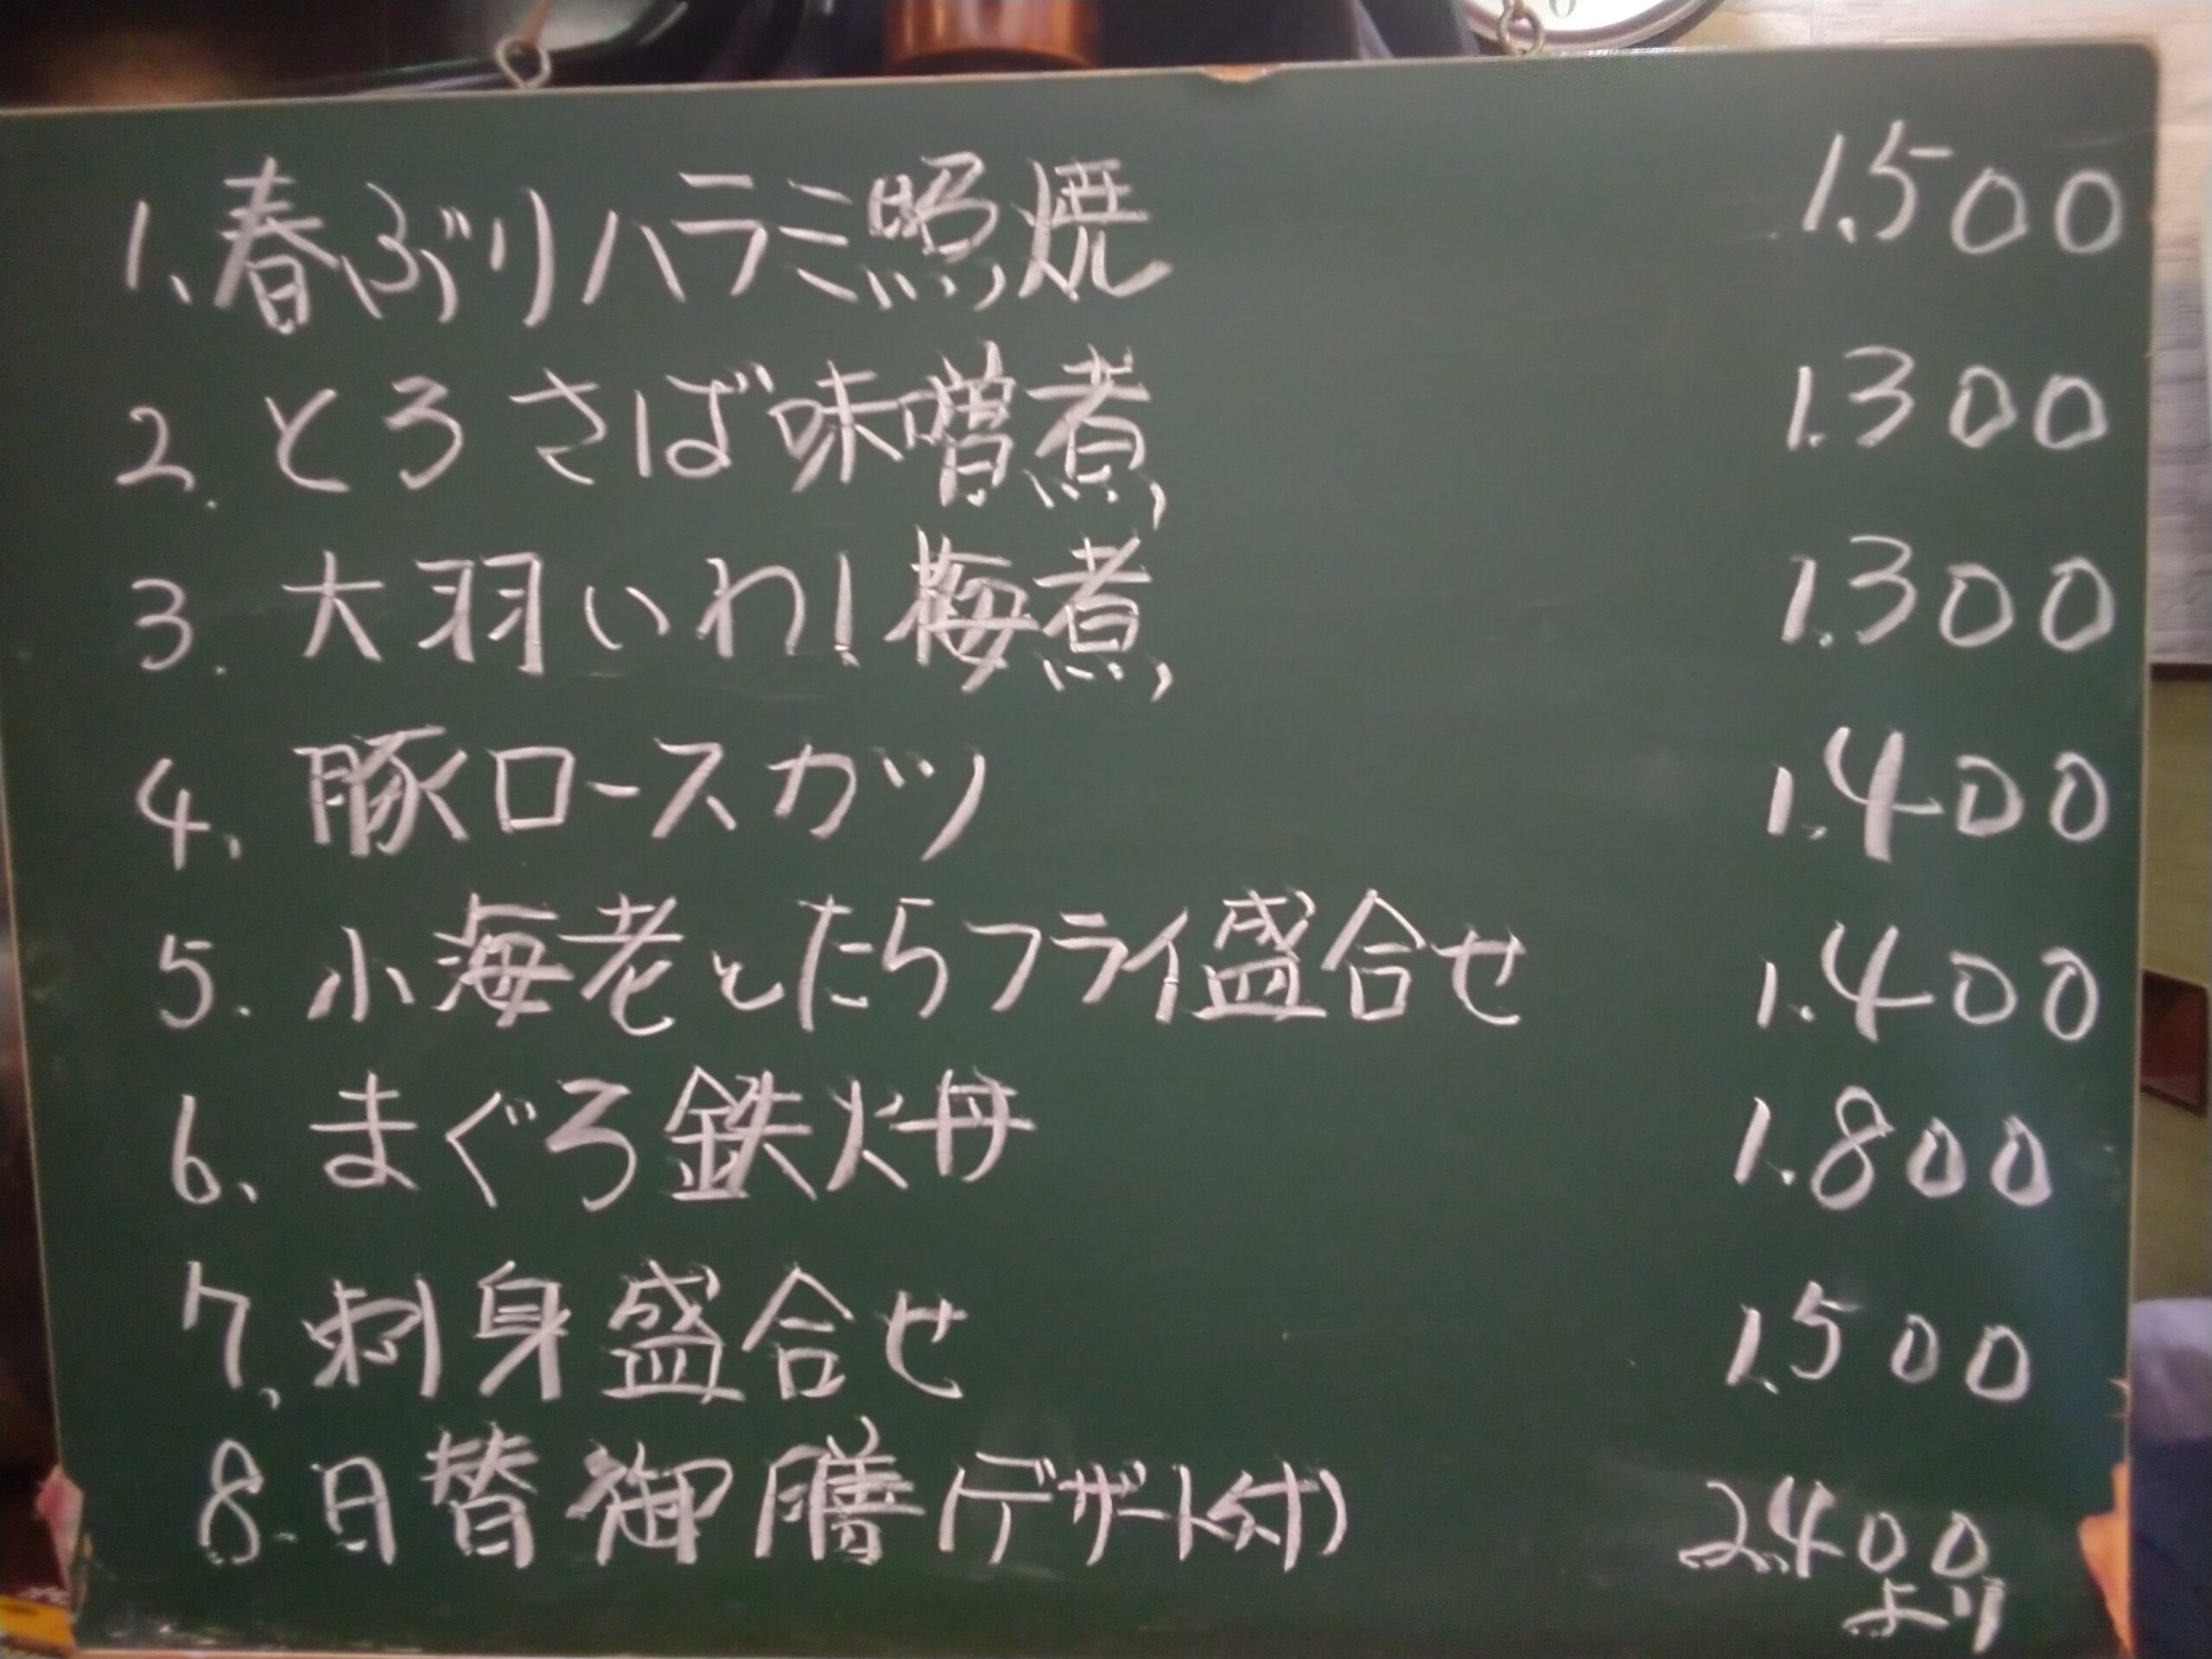 1、春ぶりハラミ照焼 1.500
2. とろさば味噌煮 1.300
3. 大羽いわし梅煮 1.300
4、豚ロースカツ 1.400
5. 小海老とたらフライ盛合せ 1.400
6、まぐろ鉄火丼 1.800
7、刺身盛合せ 1.500
8. 日替御膳(デザート付) 2.400
より